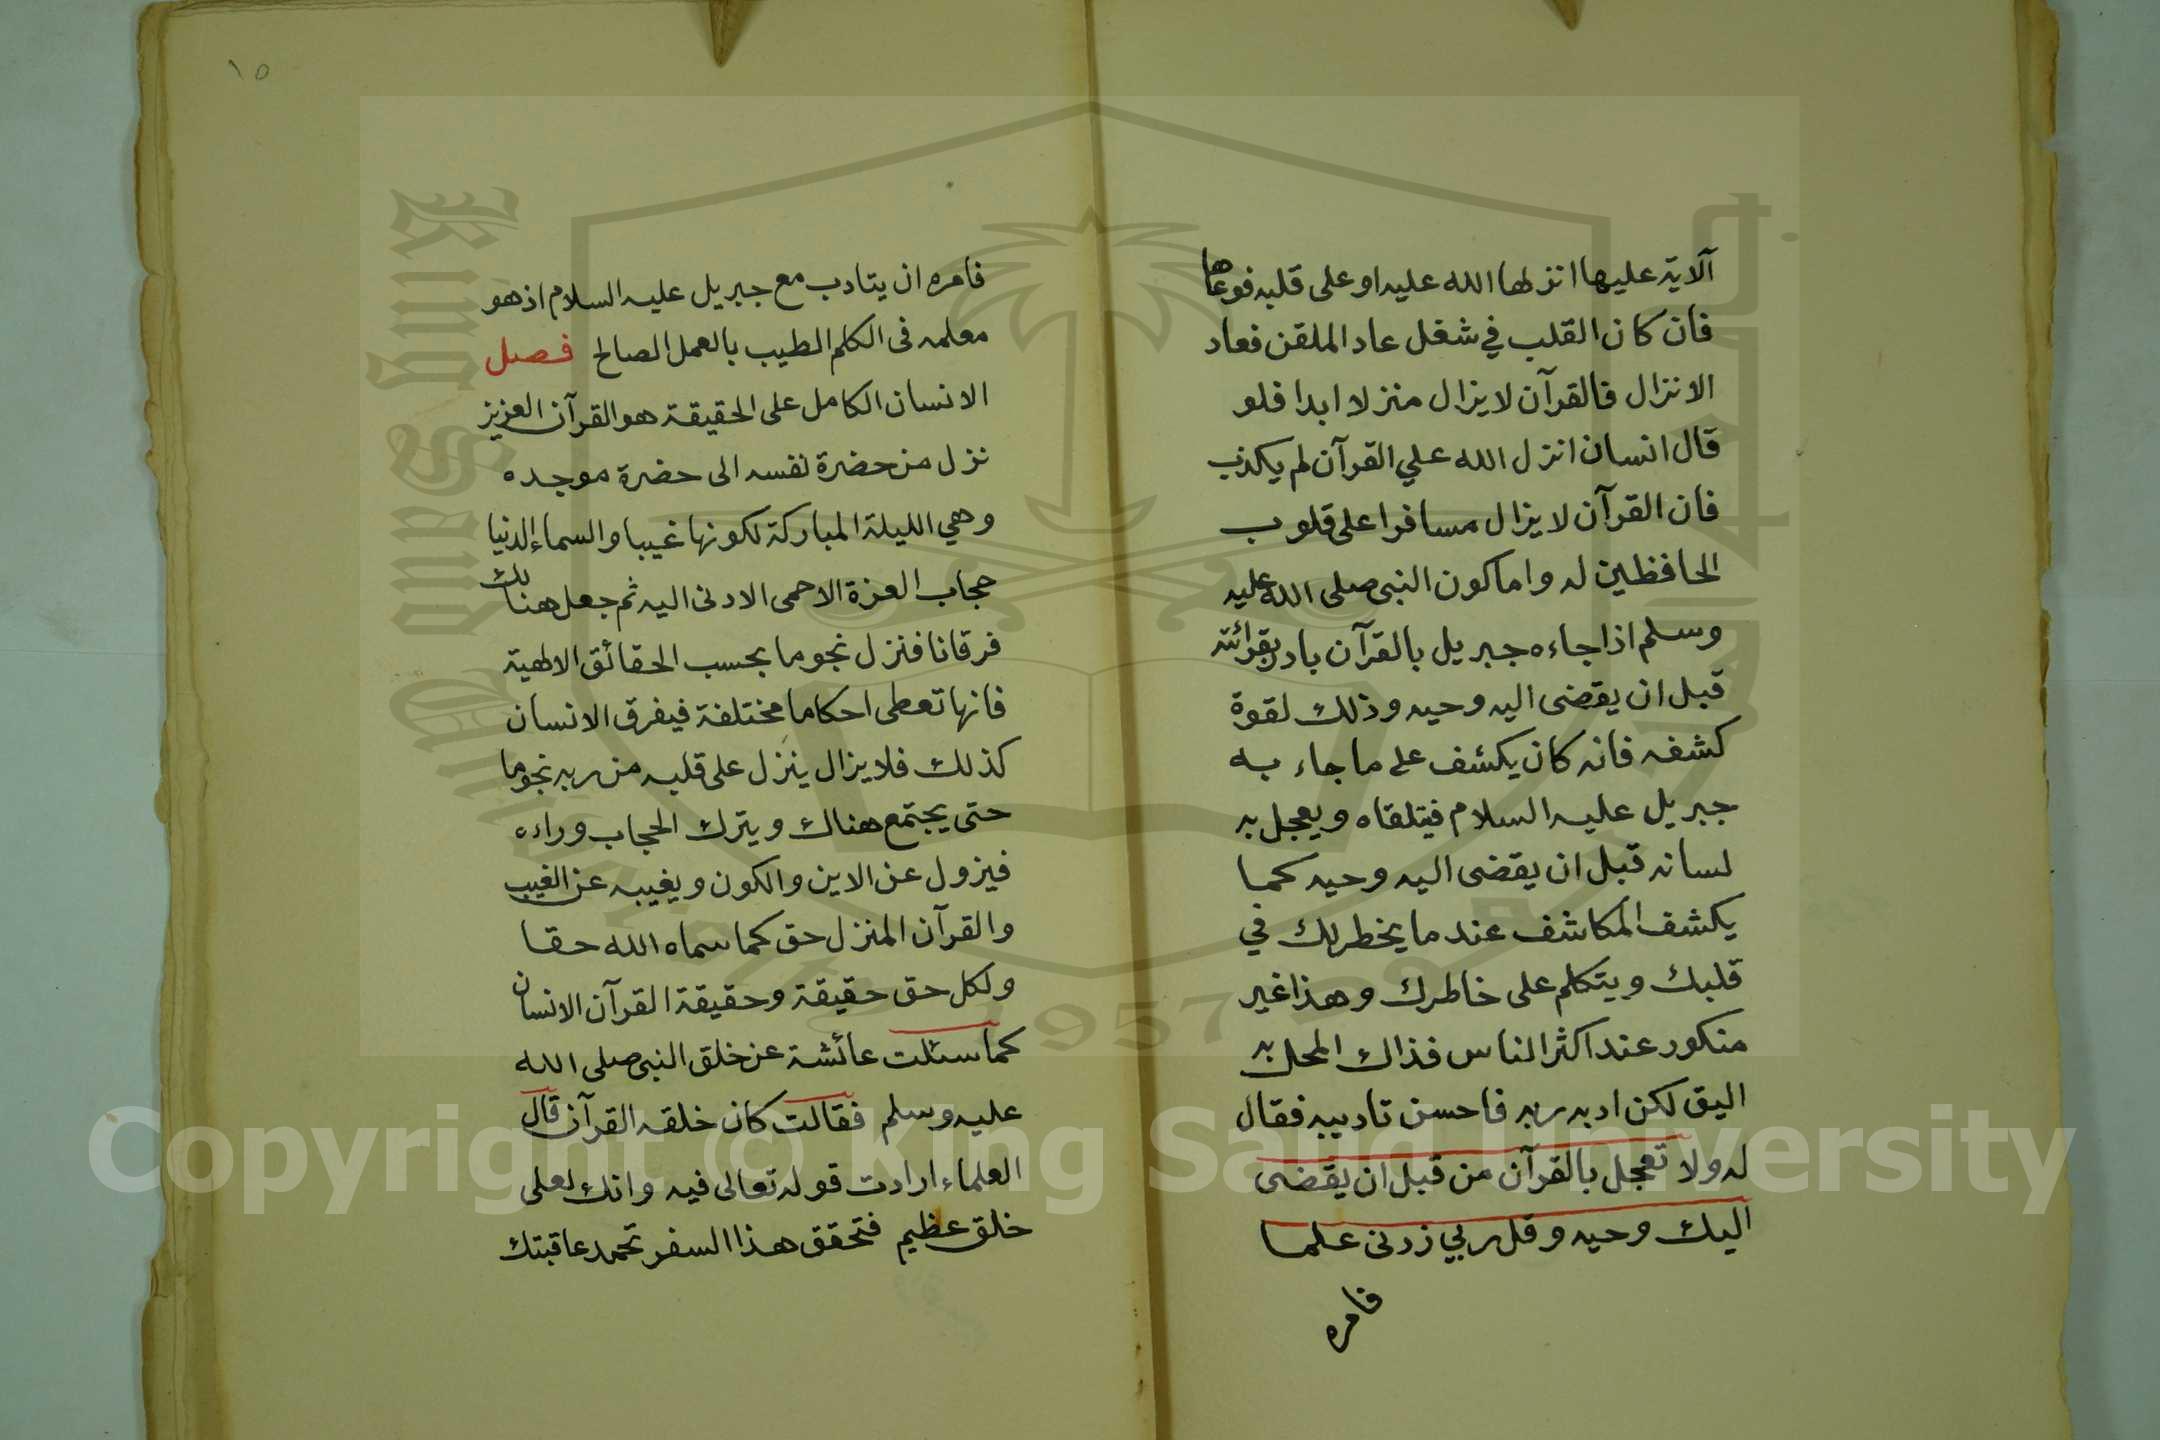 الآية عليها انزلها الله عليه او على قلبه فوعاها
فان كان القلب في شغل عاد الملقن فعاد
الانزال فالقرآن لا يزال منزلا ابدا فلو
قال انسان انزل الله علي القرآن لم يكذب
فان القرآن لا يزال مسافرا على قلوب
الحافظين له واما كون النبي صلى الله عليه
وسلم اذا جاءه جبريل بالقرآن بادر بقرائته
قبل ان يقضى اليه وحيه وذلك لقوة
كشفه فانه كان يكشف على ما جاء به
جبريل عليه السلام فيتلقاه ويعجل به
لسانه قبل ان يقضى اليه وحيه كما
يكشف المكاشف عند ما يخطر لك في
قلبك ويتكلم على خاطرك وهذا غير
منكور عند اكثر الناس فذاك المحل به
اليق لكن ادبه ربه فاحسن تاديبه فقال
له ولا تعجل بالقرآن من قبل ان يقضى
اليك وحيه وقل ربي زدنى علما
فامره
١٥
فامره ان يتادب مع جبريل عليه السلام اذ هو
معلمه فى الكلم الطيب بالعمل الصالح فصل
الانسان الكامل على الحقيقة هو القرآن العزيز
نزل من حضرة نفسه الى حضرة موجده
وهي الليلة المباركة لكونها غيبا والسماء الدنيا
حجاب العزة الاحمى الادنى اليه ثم جعل هنالك
فرقانا فنزل نجوما بحسب الحقائق الالهية
فانها تعطى احكاما مختلفة فيفرق الانسان
كذلك فلا يزال ينزل على قلبه من ربه نجوما
حتى يجتمع هناك ويترك الحجاب وراءه
فيزول عن الاين والكون ويغيب عن الغيب
والقرآن المنزل حق كما سماه الله حقا
ولكل حق حقيقة وحقيقة القرآن الانسان
كما سئلت عائشة عن خلق النبي صلى الله
عليه وسلم فقالت كان خلقه القرآن قال
العلماء ارادت قوله تعالى فيه وانك لعلى
خلق عظيم فتحقق هذا السفر تحمد عاقبتك
King Saud University
1957
Copyright © King Saud University